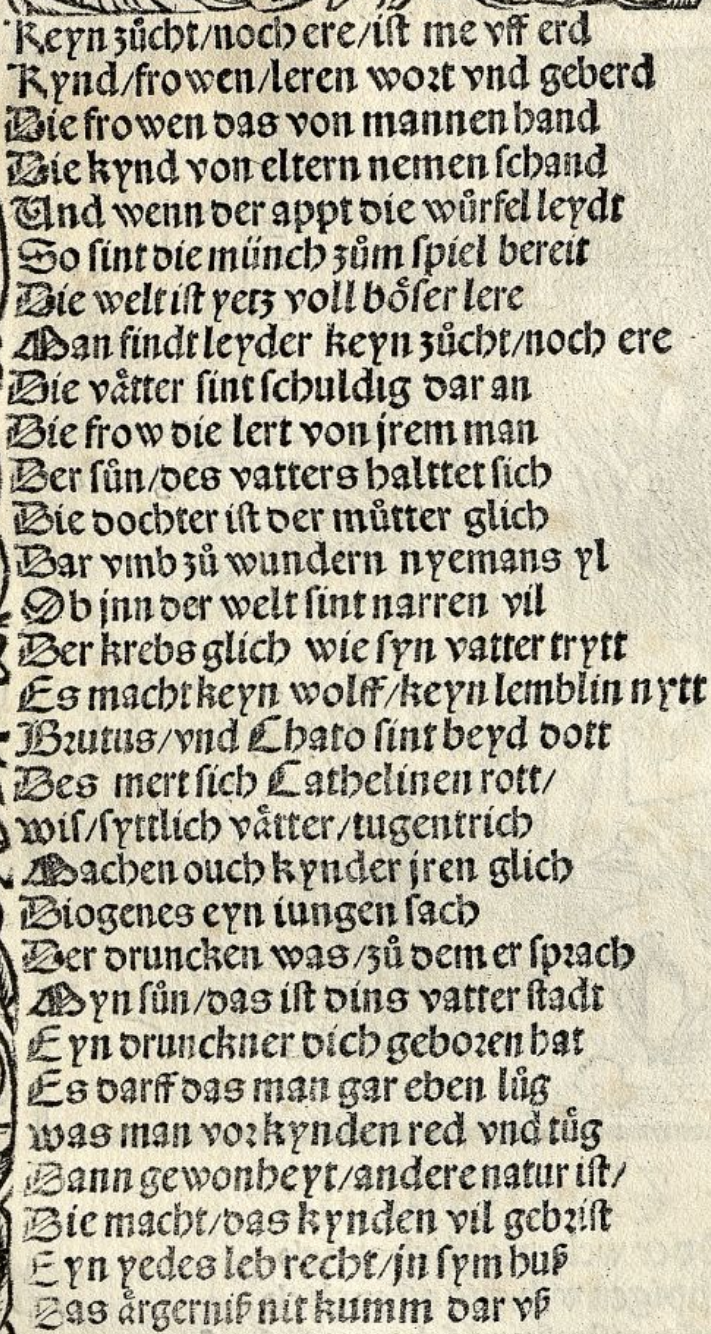 Keyn zuͦcht/noch ere/iſt me vff erd
Kynd/frowen/leren wort vnd geberd
Die frowen das von mannen hand
Die kynd von eltern nemen ſchand
Und wenn der appt die wuͤrfel leydt
So ſint die münch zuͦm ſpiel bereit
Die welt iſt yetz voll boͤſer lere
Man findt leyder keyn zuͦcht/noch ere
Die vaͤtter ſint ſchuldig dar an
Die frow die lert von jrem man
Der ſuͦn/des vatters halttet ſich
Die dochter iſt der muͦtter glich
Dar vmb zuͦ wundern nyemans yl
Ob jnn der welt ſint narren vil
Der krebs glich wie ſyn vatter trytt
Es macht keyn wolff/keyn lemblin nytt
Brutus/vnd Chato ſint beyd dott
Des mert ſich Cathelinen rott/
wiſ/ſyttlich vaͤtter/tugentrich
Machen ouch kynder jren glich
Diogenes eyn iungen ſach
Der druncken was/zuͦ dem er ſprach
Myn ſuͦn/das iſt dins vatter ſtadt
Eyn drunckner dich geboren hat
Es darff das man gar eben luͦg
was man vor kynden red vnd tuͦg
Dann gewonheyt/andere natur iſt/
Die macht/das kynden vil gebriſt
Eyn yedes leb recht/jn ſym huß
Das aͤrgerniß nit kumm dar vß